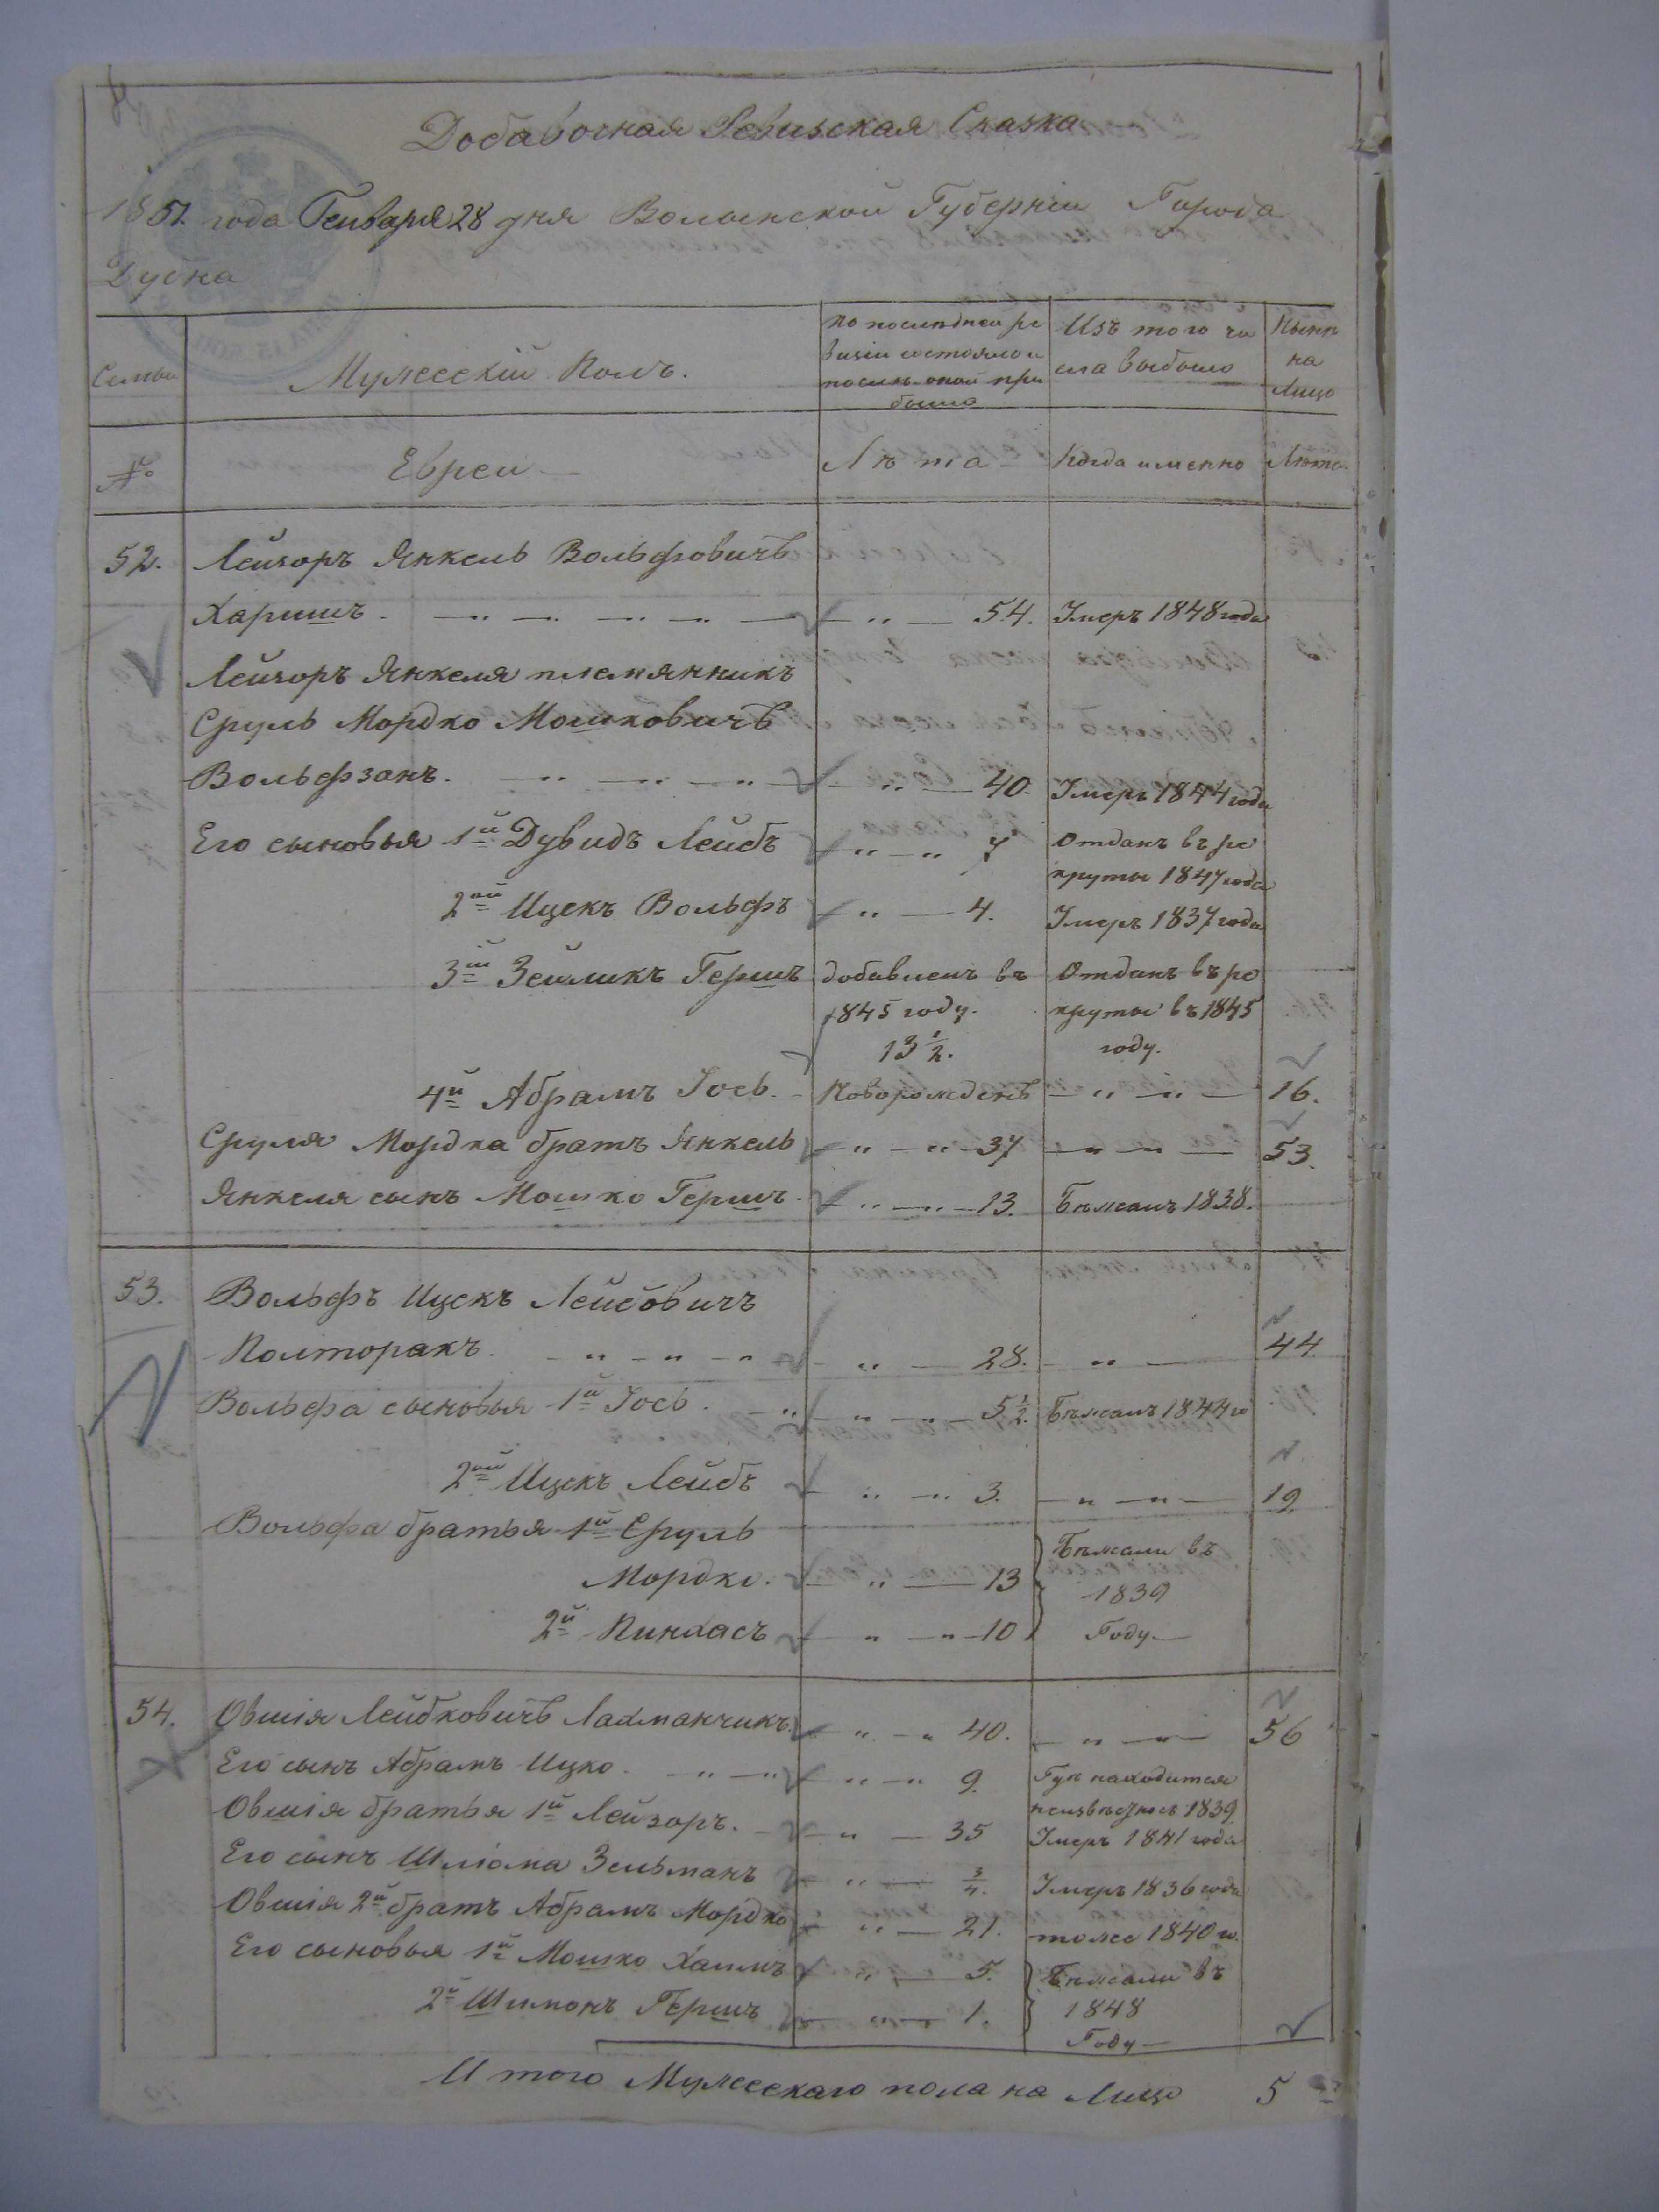 Добавочная Ревизская Сказка
1851 года Генваря 28 дня Волынской Губерніи Города
Дубна
Семьи
Мужескій Полъ.
по последней ре
визіи состояло и
после оной при
было
Изъ того чи
сла выбыло
Ныне
на
Лицо
№
Евреи
Лѣта
Когда именно
Лета
52.
Лейзоръ Янкель Вольфовичъ
Харишъ.
54.
Умеръ 1848 года
Лейзоръ Янкеля племянникъ
Сруль Мордко Мошковичъ
Вольфзонъ.
40.
Умеръ 1844 года
Его сыновья 1й Дувидъ Лейбъ
7
Отданъ въ ре
круты 1847 года
2ой Ицекъ Вольфъ
4.
Умеръ 1837 года
3ій Зейликъ Гершъ
добавленъ въ
1845 году.
13 1/2.
Отданъ въ ре
круты въ 1845
году.
4й Абрамъ Іось.
Новорожденъ
16.
Сруля Мордка братъ Янкель
37
53.
Янкеля сынъ Мошко Гершъ.
13.
Бежалъ 1838.
53.
Вольфъ Ицекъ Лейбовичъ
Полторакъ.
28.
44.
Вольфа сыновья 1й Іось.
5 1/2.
Бежалъ 1844 го
2ой Ицекъ Лейбъ
3.
19.
Вольфа братья 1й Сруль
Мордко.
13
2й Пинхасъ
10
Бежали въ
1839
Году
54.
Овшія Лейбковичъ Лахманчикъ.
40.
56
Его сынъ Абрамъ Ицко.
9.
Гдѣ находится
неизвѣстно съ 1839
Овшія братья 1й Лейзоръ.
35
Умеръ 1841 года
Его сынъ Шліома Зельманъ
3/4.
Умеръ 1836 года
Овшія 2й братъ Абрамъ Мордко
21.
тоже 1840 го.
Его сыновья 1й Мошко Хаимъ
5.
2й Шимонъ Гершъ
1.
Бежали въ
1848
Году
Итого Мужескаго пола на Лицо
5